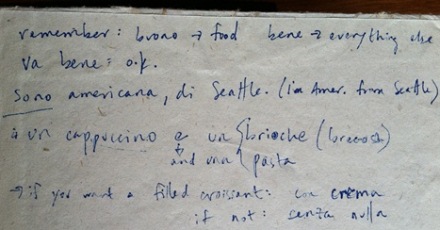 remember: buono → food bene → everything else
va bene: o.k.
Sono americana, di Seattle. (I'm Amer. from Seattle)
un cappuccino e un brioche
and una pasta
→ if you want a filled croissant: con crema
if not: senza nulla